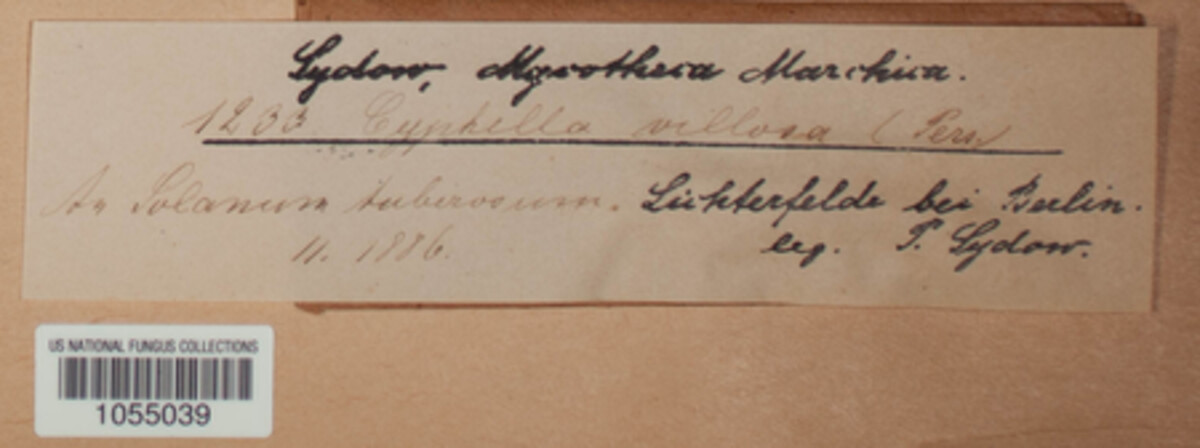 Sydow, Mycotheca Marchica.
1233 Cyphella villosa (Pers.)
An Solanum tuberosum. Lichterfelde bei Berlin.
11. 1886. leg. P. Sydow.
US NATIONAL FUNGUS COLLECTIONS
1055039